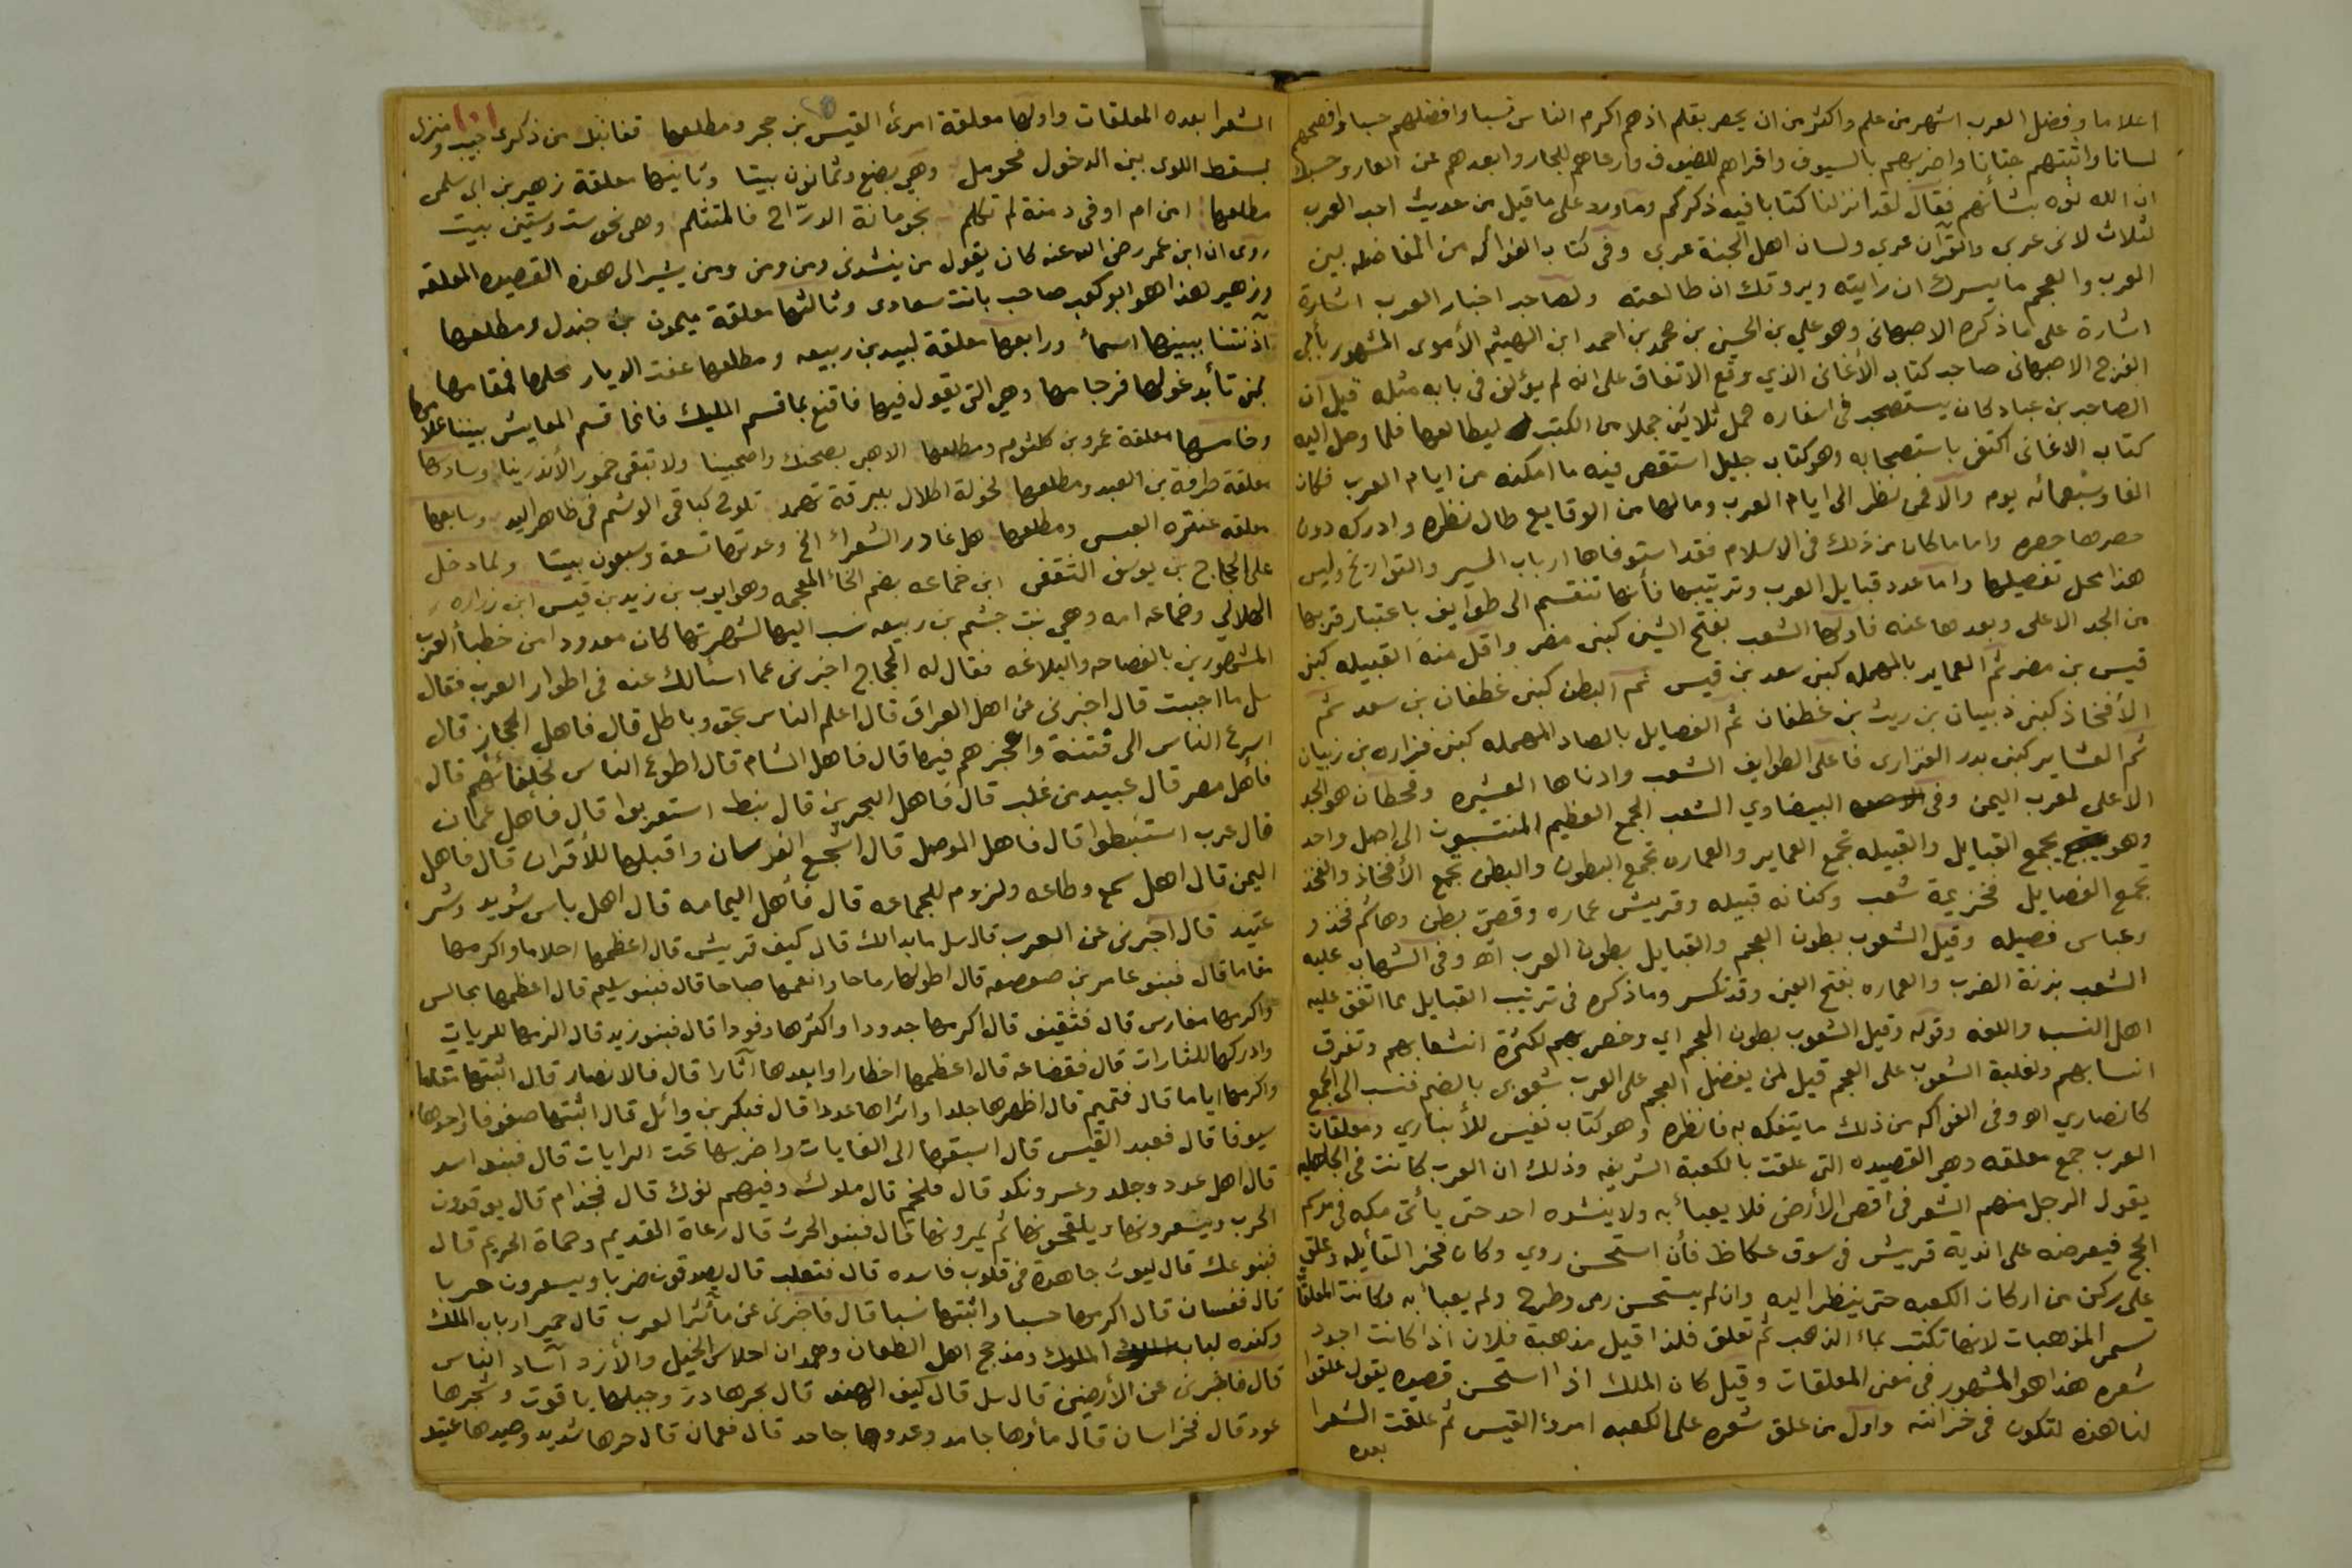 اعلاما وفضل العرب اشهر من علم واكثر من ان يحصر بقلم اذ هم اكرم الناس نسبا وافضلهم حسبا وافصحهم
لسانا واثبتهم جنانا واضربهم بالسيوف واقراهم للضيوف وارعاهم للجار وابعدهم عن العار وحسبك
ان الله نوه بشأنهم فقال لقد انزلنا كتابا فيه ذكركم وما ورد على ما قيل من حديث احب العرب
لثلاث لانى عربى والقرآن عربي ولسان اهل الجنة عربي وفى كتاب الفواكه من المفاضله بين
العرب والعجم ما يسرك ان رايته ويروقك ان طالعته ولصاحب اخبار العرب اشارة
اشارة على ما ذكره الاصبهانى وهو علي بن الحسين بن محمد بن احمد ابن الهيثم الأموى المشهور بأبى
الفرج الاصبهانى صاحب كتاب الأغانى الذي وقع الاتفاق على انه لم يؤلف فى بابه مثله قيل ان
الصاحب بن عباد كان يستصحب فى اسفاره حمل ثلاثين جملا من الكتب ليطالعها فلما وصل اليه
كتاب الاغانى اكتفى باستصحابه وهو كتاب جليل استقصى فيه ما امكنه من ايام العرب فكان
الفا وسبعمائه يوم والا فمن نظر الى ايام العرب ومالها من الوقايع طال نظره وادرك دون
حصرها حصره واما ما كان من ذلك فى الاسلام فقد استوفاها ارباب السير والتواريخ وليس
هذا محل تفصيلها واما عدد قبايل العرب وترتيبها فأنها تنقسم الى طوايف باعتبار قربها
من الجد الاعلى وبعدها عنه فاولها الشعب بفتح الشين كبنى مضر واقل منه القبيله كبنى
قيس بن مضر ثم العماير بالمهمله كبنى سعد بن قيس ثم البطن كبنى غطفان بن سعد ثم
الأفخاذ كبنى ذبيان بن ريث بن غطفان ثم الفصايل بالصاد المهمله كبنى فزاره بن ذبيان
ثم العشاير كبنى بدر الفزارى فاعلى الطوايف الشعب وادناها العشيره وقحطان هو الجد
الاعلى لعرب اليمن وفى البيضاوي الشعب الجمع العظيم المنتسبون الى اصل واحد
وهو يجمع القبايل والقبيله تجمع العماير والعماره تجمع البطون والبطن تجمع الأفخاذ والفخذ
تجمع الفصايل فخزيمة شعب وكنانه قبيله وقريش عماره وقصى بطن وهاشم فخذ
وعباس فصيله وقيل الشعوب بطون العجم والقبايل بطون العرب اه وفى الشهاب عليه
الشعب بزنة الضرب والعماره بفتح العين وقد تكسر وما ذكره فى ترتيب القبايل مما اتفق عليه
اهل النسب واللغه وقوله وقيل الشعوب بطون العجم اي وخص بهم لكثرة انشعابهم وتفرق
انسابهم ولغلبة الشعوب على العجم قيل لمن يفضل العجم على العرب شعوبى بالضم فنسب الى الجمع
كانصاري اه وفى الفواكه من ذلك ما يتفكه به فانظره وهو كتاب نفيس للأنباري ومعلقات
العرب جمع معلقه وهى القصيده التى علقت بالكعبة الشريفه وذلك ان العرب كانت فى الجاهليه
يقول الرجل منهم الشعر فى اقصى الأرض فلا يعبأ به ولا ينشده احد حتى يأتى مكه فى موسم
الحج فيعرضه على اندية قريش فى سوق عكاظ فأن استحسن روي وكان فخر القائله وعلق
على ركن من اركان الكعبه حتى ينظر اليه وان لم يستحسن رمى وطرح ولم يعبأ به وكانت المعلقات
تسمى المذهبات لانها تكتب بماء الذهب ثم تعلق فلذا قيل مذهبة فلان اذا كانت اجود
شعره هذا هو المشهور فى معنى المعلقات وقيل كان الملك اذا استحسن قصيده يقول علقوا
لنا هذه لتكون فى خزانته واول من علق شعره على الكعبه امرؤ القيس ثم علقت الشعرا
بعده
١٠١
الشعرا بعده المعلقات واولها معلقة امرئ القيس بن حجر ومطلعها قفا نبك من ذكرى حبيب ومنزل
بسقط اللوى بين الدخول فحومل وهي بضع وثمانون بيتا وثانيها معلقة زهير بن ابى سلمى
مطلعها امن ام اوفى دمنة لم تكلم بحومانة الدراج فالمتثلم وهى نحو ست وستين بيت
روى ان ابن عمر رضى الله عنه كان يقول من ينشدنى ومن ومن ومن يشير الى هذه القصيده المعلقه
وزهير هذا هو ابو كعب صاحب بانت سعاد وثالثها معلقة ميمون بن جندل ومطلعها
آذنتنا ببينها اسماء ورابعها معلقة لبيد بن ربيعه ومطلعها عفت الديار محلها فمقامها
بمنى تأبد غولها فرجامها وهي التى يقول فيها فاقنع بما قسم المليك فانما قسم المعايش بيننا علامها
وخامسها معلقة عمرو بن كلثوم ومطلعها الا هبى بصحنك واصحبينا ولا تبقى خمور الأندرينا وسادسها
معلقة طرفة بن العبد ومطلعها لخولة اطلال ببرقة ثهمد تلوح كباقى الوشم فى ظاهر اليد وسابعها
معلقه عنتره العبسى ومطلعها هل غادر الشعراء الخ وعدتها تسعة وسبعون بيتا ولما دخل
على الحجاج بن يوسف الثقفى ابن خماعه بضم الخاء المعجمه وهو ايوب بن زيد بن قيس ابن زراره
الهلالي وخماعه امه وهي بنت جشم بن ربيعه نسب اليها لشهرتها كان معدودا من خطبأ العرب
المشهورين بالفصاحه والبلاغه فقال له الحجاج اخبرنى عما اسئالك عنه فى اطوار العرب فقال
سل ما احببت قال اخبرنى عن اهل العراق قال اعلم الناس بحق وباطل قال فاهل الحجاز قال
اسرع الناس الى فتنة واعجزهم فيها قال فاهل الشام قال اطوع الناس لخلفائهم قال
فأهل مصر قال عبيد من غلب قال فاهل البحرين قال نبط استعربوا قال فأهل عمان
قال عرب استنبطوا قال فاهل الموصل قال اشجع الفرسان واقبلها للأقران قال فاهل
اليمن قال اهل سمع وطاعه ولزوم للجماعه قال فأهل اليمامه قال اهل باس شديد وشر
عتيد قال اخبرنى عن العرب قال سل ما بدالك قال كيف قريش قال اعظمها احلاما واكرمها
مقاما قال فبنو عامر بن صعصعه قال اطولها رماحا وانعمها صباحا قال فبنو سليم قال اعظمها مجالس
واكرمها مغارس قال فثقيف قال اكرمها جدودا واكثرها وفودا قال فبنو زبيد قال الزمها للريات
وادركها للثارات قال فقضاعه قال اعظمها اخطارا وابعدها آثارا قال فالانصار قال اثبتها مقاما
واكرمها اياما قال فتميم قال اظهرها جلدا واثراها عددا قال فبكر بن وائل قال اثبتها صفوفا واحدها
سيوفا قال فعبد القيس قال اسبقها الى الغايات واضربها تحت الرايات قال فبنو اسد
قال اهل عدد وجلد وعسر ونكد قال فلخم قال ملوك وفيهم نوك قال فجذام قال يوقدون
الحرب ويسعرونها ويلقحونها ثم يمرونها قال فبنو الحرث قال رعاة القديم وحماة الحريم قال
فبنو عك قال ليوث جاهدة فى قلوب فاسده قال فتغلب قال يصدقون ضربا ويسعرون حربا
قال فغسان قال اكرمها حسبا واثبتها نسبا قال فاخبرنى عن مأثر العرب قال حمير ارباب الملك
وكنده لباب الملوك ومذحج اهل الطعان وهمدان احلاس الخيل والأزد آساد الناس
قال فاخبرنى عن الأرضين قال سل قال كيف الهند قال بحرها در وجبلها ياقوت وشجرها
عود قال فخراسان قال مأوها جامد وعدوها جاحد قال فعمان قال حرها شديد وصيدها عتيد